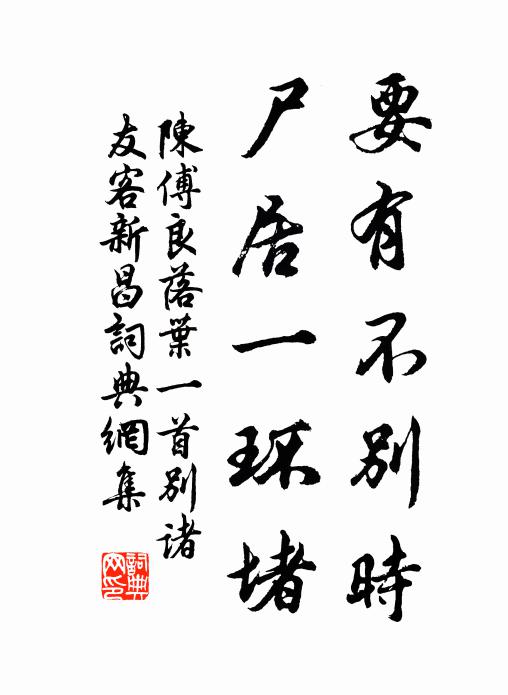 要有不别時
尸居一环堵
陳傅良落葉一首别诸
友客新昌詞典網集
詞典网印